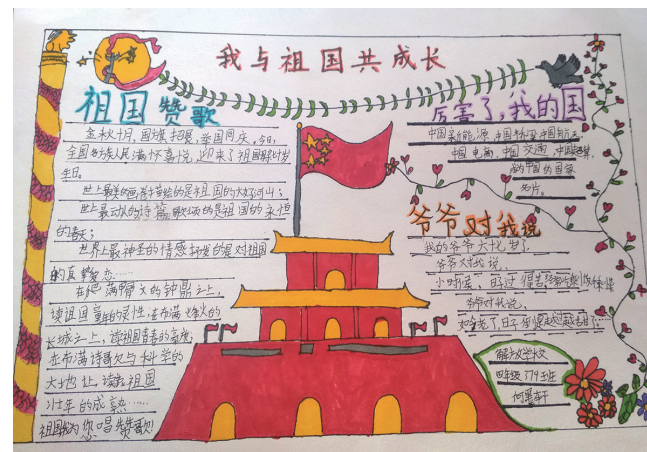 我与祖国共成长
祖国赞歌
金秋十月，国旗招展，举国同庆。今日，
全国各族人民满怀喜悦，迎来了祖国
生日。
世上最美的画卷描绘的是祖国的大好河山；
世上最动人的诗篇歌颂的是祖国的永恒
的春天；
世界上最神圣的情感抒发的是对祖国
的真挚爱恋……
在的钟鼎之上，
读祖国童年的灵性；在布满烽火的
长城之上，读祖国青春的高度；
在布满诗歌与科学的
大地上，读祖国
壮年的成熟……
祖国我为您唱赞歌！
厉害了，我的国
中国新能源、中国桥梁、中国航天、
中国电商、中国交通、
的国家
名片。
爷爷对我说
我的爷爷大七岁了
爷爷对我说，
小时候、日子过得苦
爷爷对我说，
如今老了，日子
解放路学校
四年级379班
何墨轩